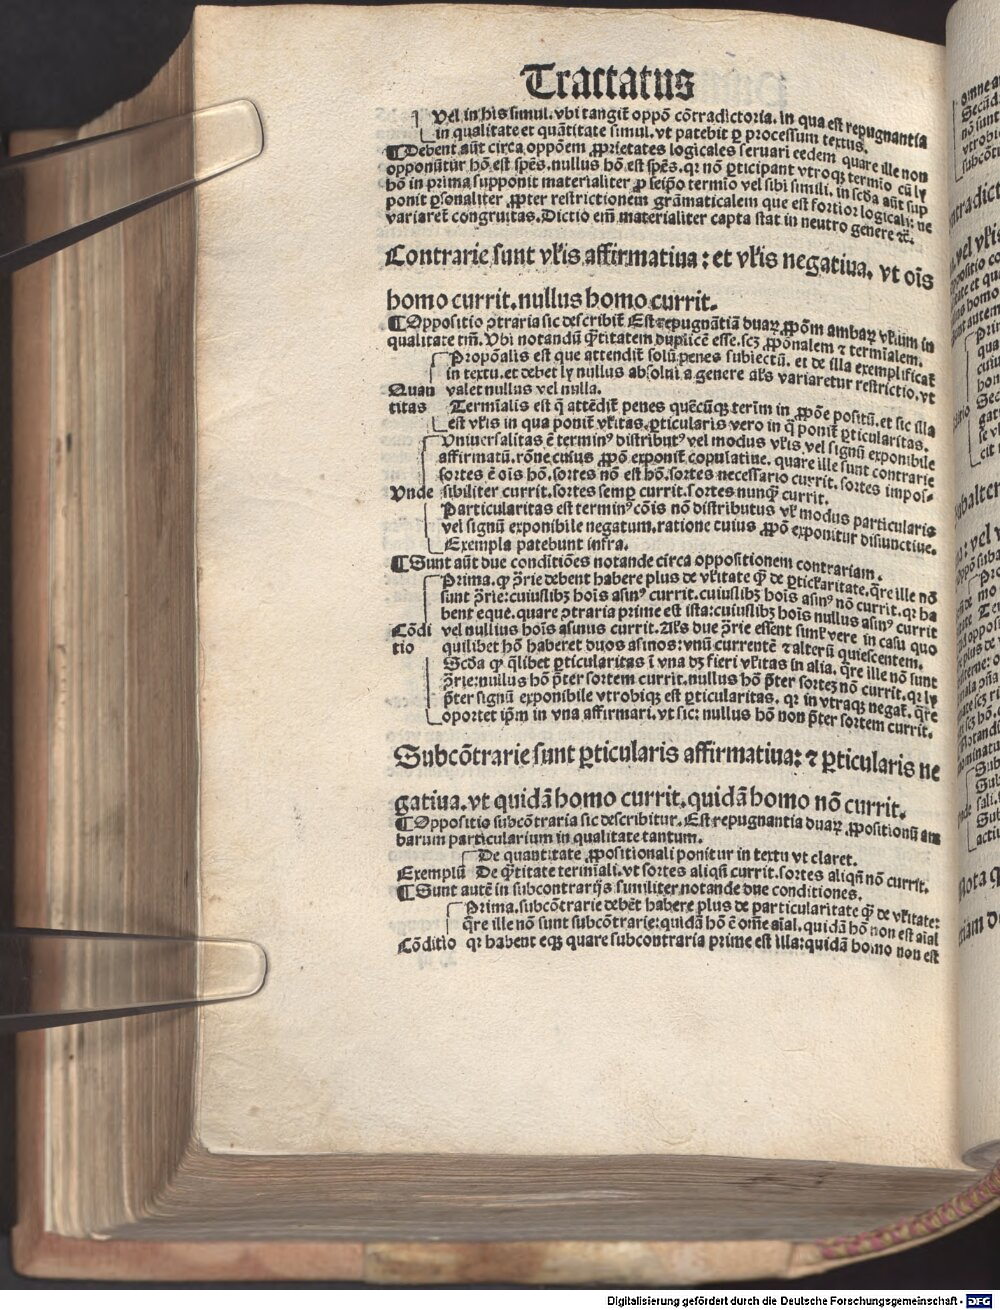 Tractatus
Vel in his simul. vbi tangit̄ oppō cōtradictoria. in qua est repugnantia
in qualitate et quātitate simul. vt patebit ꝑ processum textus.
¶ Debent aūt circa oppōem ꝓprietates logicales seruari eedem quare ille non
opponūtur hō est spēs. nullus hō est spēs. qꝛ nō ꝑticipant vtroqꝫ termio cū ly
hō in prima supponit materialiter ꝓ seipō termio vel sibi simili. in scḋa aūt sup
ponit ꝑsonaliter ꝓpter restrictionem grāmaticalem que est fortior logicali: ne
variaret̄ congruitas. Dictio em̄ materialiter capta stat in neutro genere ⁊c̄.
Contrarie sunt vꝉis affirmatiua : et vꝉis negatiua. vt oīs
homo currit. nullus homo currit.
¶ Oppositio ꝯtraria sic describit̄ Est repugnātiā duaꝝ ꝓpōm ambaꝝ vꝉium in
qualitate tm̄. Vbi notandū q̄titatem duplicē esse. scꝫ ꝓpōnalem ⁊ termīalem.
Propōalis est que attendit̄ solū penes subiectū. et de illa exemplificat̄
in textu. et debet ly nullus absolui a genere aꝉs variaretur restrictio. vt
Quan valet nullus vel nulla.
titas Termīalis est q̄ attēdit̄ penes quēcūqꝫ terīm in ꝓpōe positū. et sic illa
est vꝉis in qua ponit̄ vꝉitas. ꝑticularis vero in q̄ ponit̄ ꝑticularitas.
Vniuersalitas ē terminꝰ distributꝰ vel modus vꝉis vel signū exponibile
affirmatū. rōne cuius ꝓpō exponit̄ copulatiue. quare ille sunt contrarie
sortes ē oīs hō. sortes nō est hō. sortes necessario currit. sortes impos-
Vnde sibiliter currit. sortes semꝑ currit. sortes nunqͣ̄ currit.
Particularitas est terminꝰ cōis nō distributus vꝉ modus particularis
vel signū exponibile negatum. ratione cuius ꝓpō exponitur disiunctiue.
Exempla patebunt infra.
¶ Sunt aūt due conditiōes notande circa oppositionem contrariam.
Prima. ꝙ ꝯ̄rie debent habere plus de vꝉitate qͣ̄ de ꝑticꝉaritate. q̄re ille nō
sunt ꝯ̄rie: cuiuslibꝫ hoīs asinꝰ currit. cuiuslibꝫ hoīs asinꝰ nō currit. qꝛ ha
bent eque. quare ꝯtraria prime est ista: cuiuslibꝫ hoīs nullus asinꝰ currit
Cōdi vel nullius hoīs asinus currit. Aꝉs due ꝯ̄rie essent simꝉ vere in casu quo
tio quilibet hō haberet duos asinos: vnū currentē ⁊ alterū quiescentem.
Scḋa ꝙ q̄libet ꝑticularitas ī vna dꝫ fieri vꝉitas in alia. q̄re ille nō sunt
ꝯ̄rie: nullus hō p̄ter sortem currit. nullus hō p̄ter sorteꝫ nō currit. qꝛ ly
p̄ter signū exponibile vtrobiqꝫ est ꝑticularitas. qꝛ in vtraqꝫ negat̄. q̄re
oportet ip̄m in vna affirmari. vt sic: nullus hō non p̄ter sortem currit.
Subcōtrarie sunt ꝑticularis affirmatiua: ⁊ ꝑticularis ne
gatiua. vt quidā homo currit. quidā homo nō currit.
¶ Oppositio subcōtraria sic describitur. Est repugnantia duaꝝ ꝓpositionū am
barum particularium in qualitate tantum.
De quantitate ꝓpositionali ponitur in textu vt claret.
Exemplū De q̄titate termīali. vt sortes aliqͣ̄ currit. sortes aliqͣ̄ nō currit.
¶ Sunt autē in subcontrarijs similiter notande due conditiones.
Prima. subcōtrarie debēt habere plus de particularitate qͣ̄ de vꝉitate:
q̄re ille nō sunt subcōtrarie: quidā hō ē om̄e aīal. quidā hō non est aīal
Cōditio qꝛ habent eqꝫ quare subcontraria prime est illa: quidā homo non est
Digitalisierung gefördert durch die Deutsche Forschungsgemeinschaft - DFG